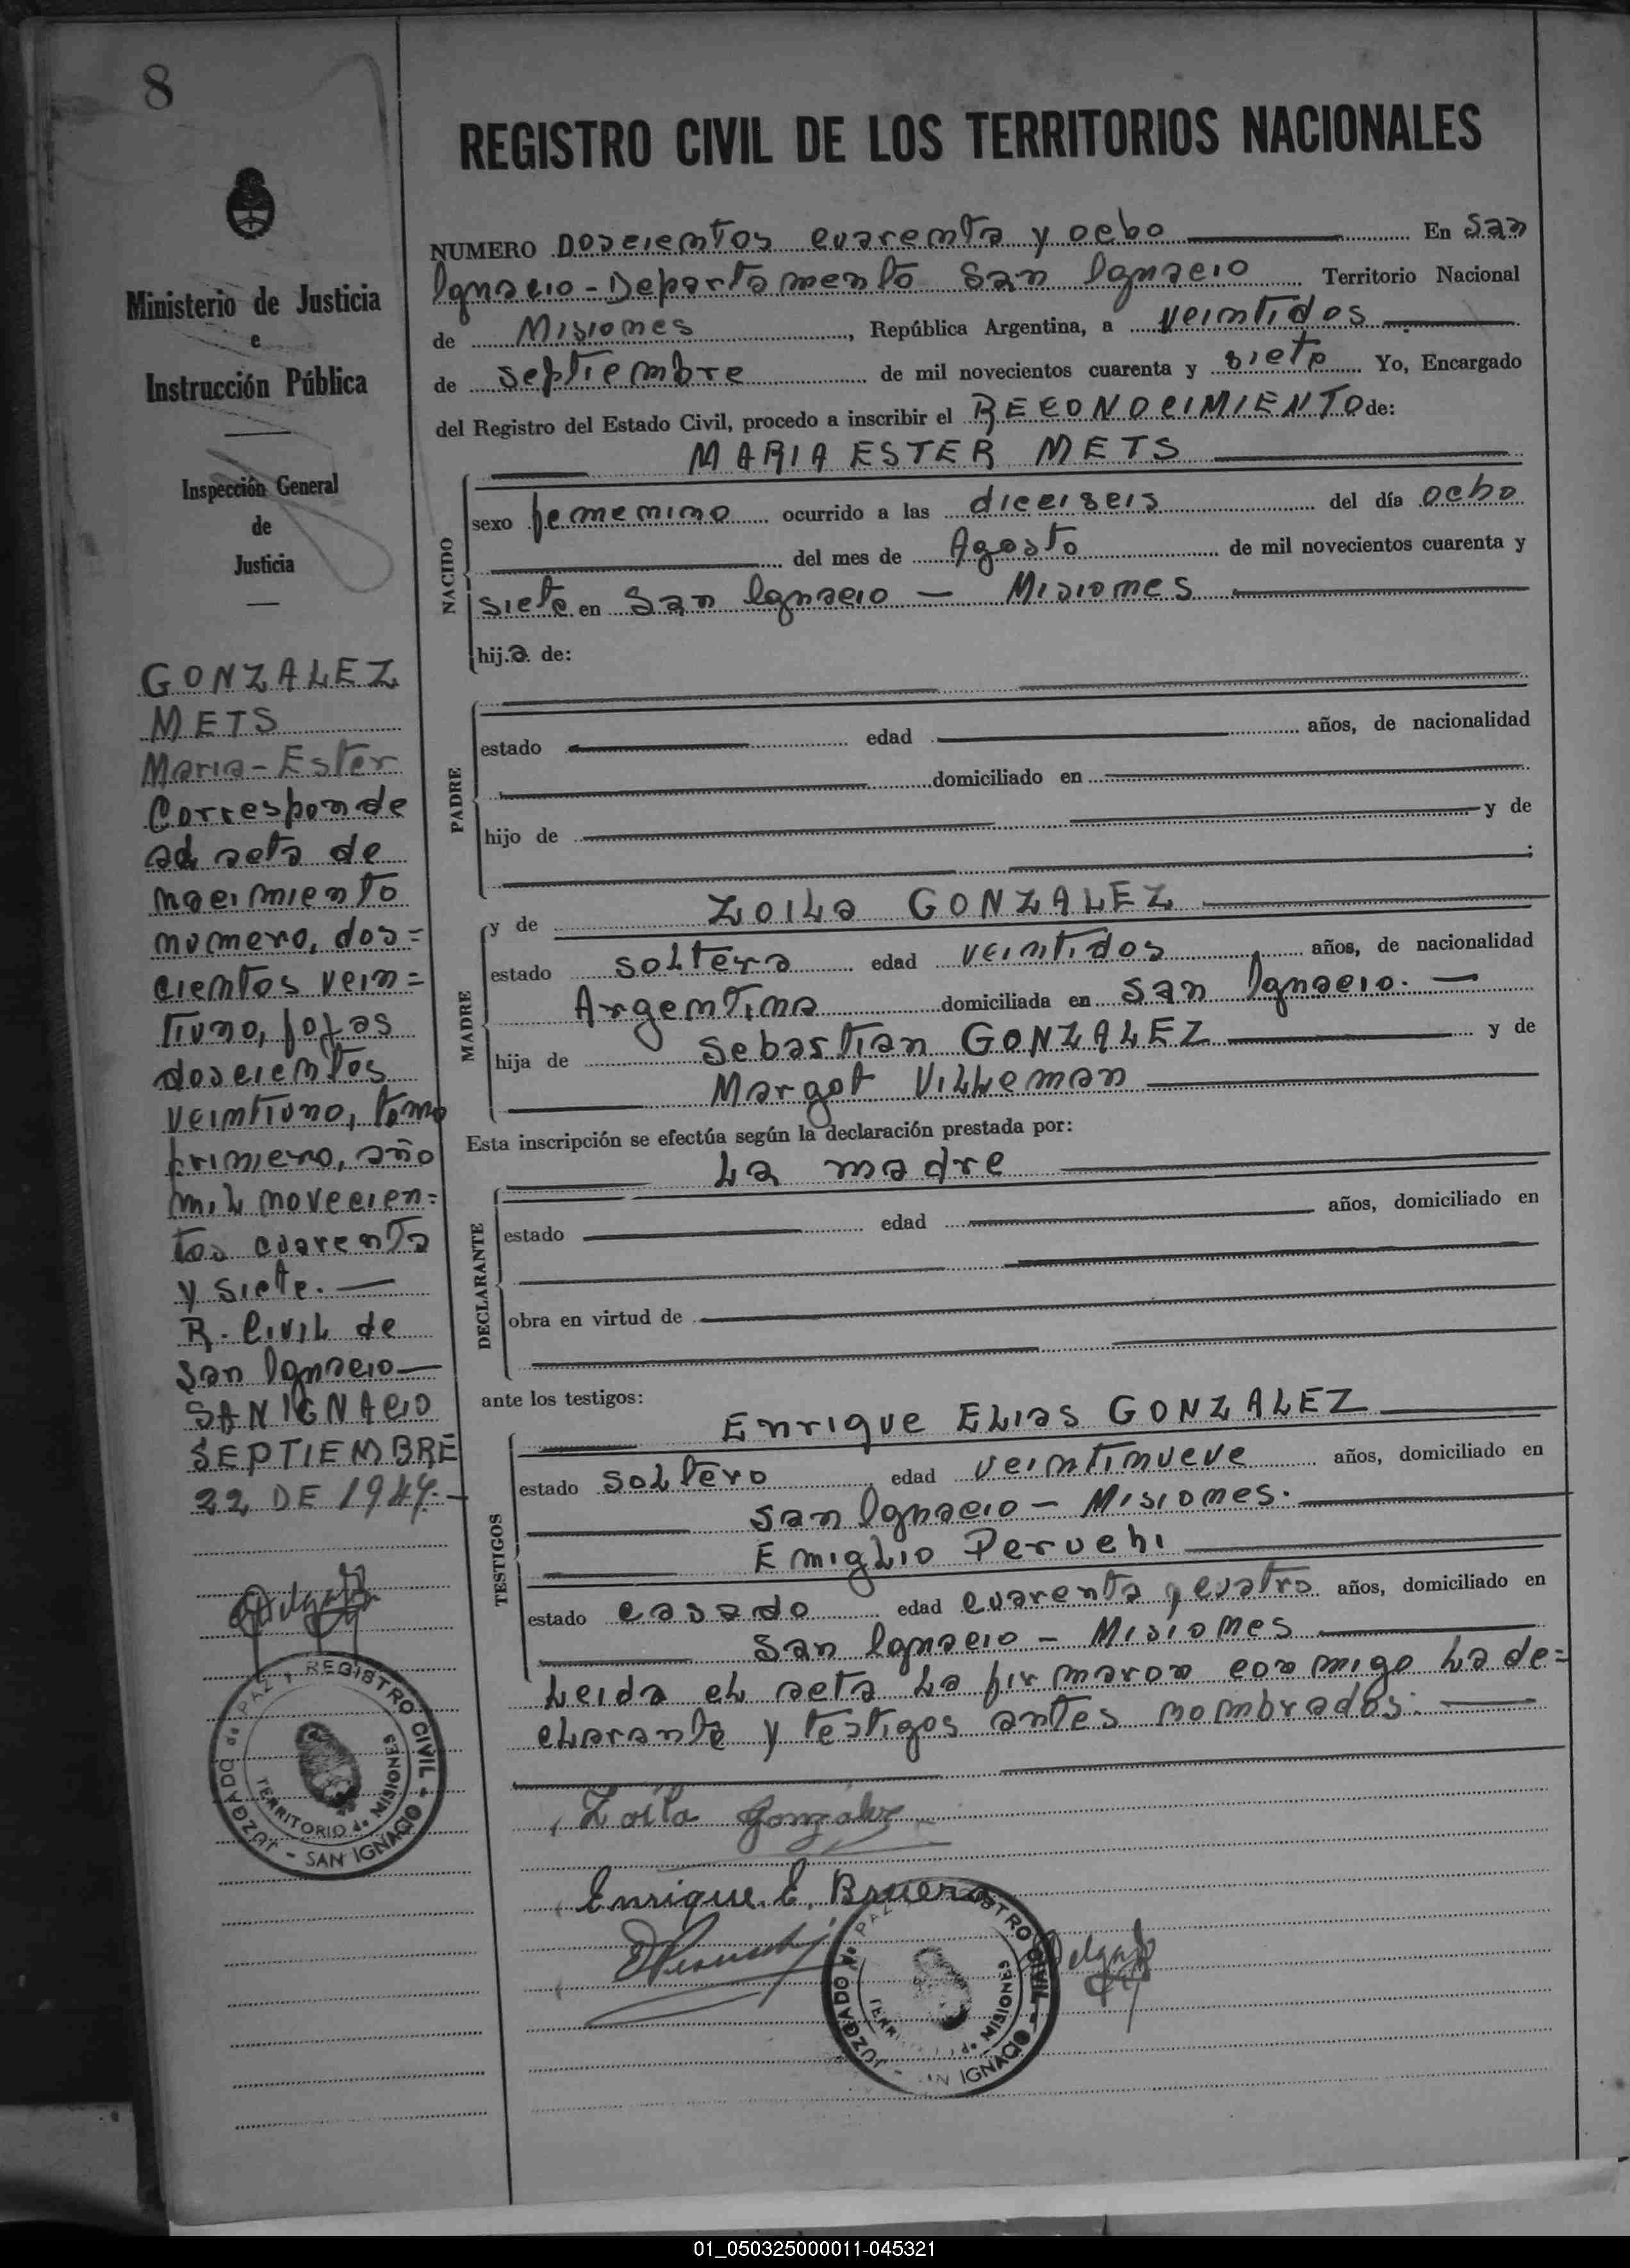 8
REGISTRO CIVIL DE LOS TERRITORIOS NACIONALES
Ministerio de Justicia
e
Instrucción Pública
Inspección General
de
Justicia
GONZALEZ
METS
Maria-Ester
Corresponde
al acta de
nacimiento
numero, dos=
cientos vein=
tiuno, fojas
doscientos
veintiuno, tomo
primero, año
mil novecien=
tos cuarenta
y siete.—
R. Civil de
San Ignacio—
SAN IGNACIO
SEPTIEMBRE
22 DE 1947.-
JUZGADO de PAZ Y REGISTRO CIVIL - SAN IGNACIO -
TERRITORIO de MISIONES
NUMERO Doscientos cuarenta y ocho En San
Ignacio-Departamento San Ignacio Territorio Nacional
de Misiones, República Argentina, a veintidos
de septiembre de mil novecientos cuarenta y siete Yo, Encargado
del Registro del Estado Civil, procedo a inscribir el RECONOCIMIENTO de:
MARIA ESTER METS
NACIDO
sexo femenino ocurrido a las dieciseis del día ocho
del mes de Agosto de mil novecientos cuarenta y
siete en San Ignacio — Misiones
hija de:
PADRE
estado edad años, de nacionalidad
domiciliado en
hijo de y de
;
MADRE
y de Zoila GONZALEZ
estado soltera edad veintidos años, de nacionalidad
Argentina domiciliada en San Ignacio. —
hija de Sebastian GONZALEZ y de
Margot Villeman
Esta inscripción se efectúa según la declaración prestada por:
La madre
DECLARANTE
estado edad años, domiciliado en
obra en virtud de
ante los testigos:
TESTIGOS
Enrique Elias GONZALEZ
estado soltero edad veintinueve años, domiciliado en
San Ignacio - Misiones.
Emiglio Peruchi
estado casado edad cuarenta y cuatro años, domiciliado en
San Ignacio - Misiones
Leida el acta la firmaron conmigo la de=
clarante y testigos antes nombrados.
Zoila Gonzalez
Enrique E. Bruera
JUZGADO de PAZ REGISTRO CIVIL - IGNACIO -
MISIONES
01_050325000011-045321